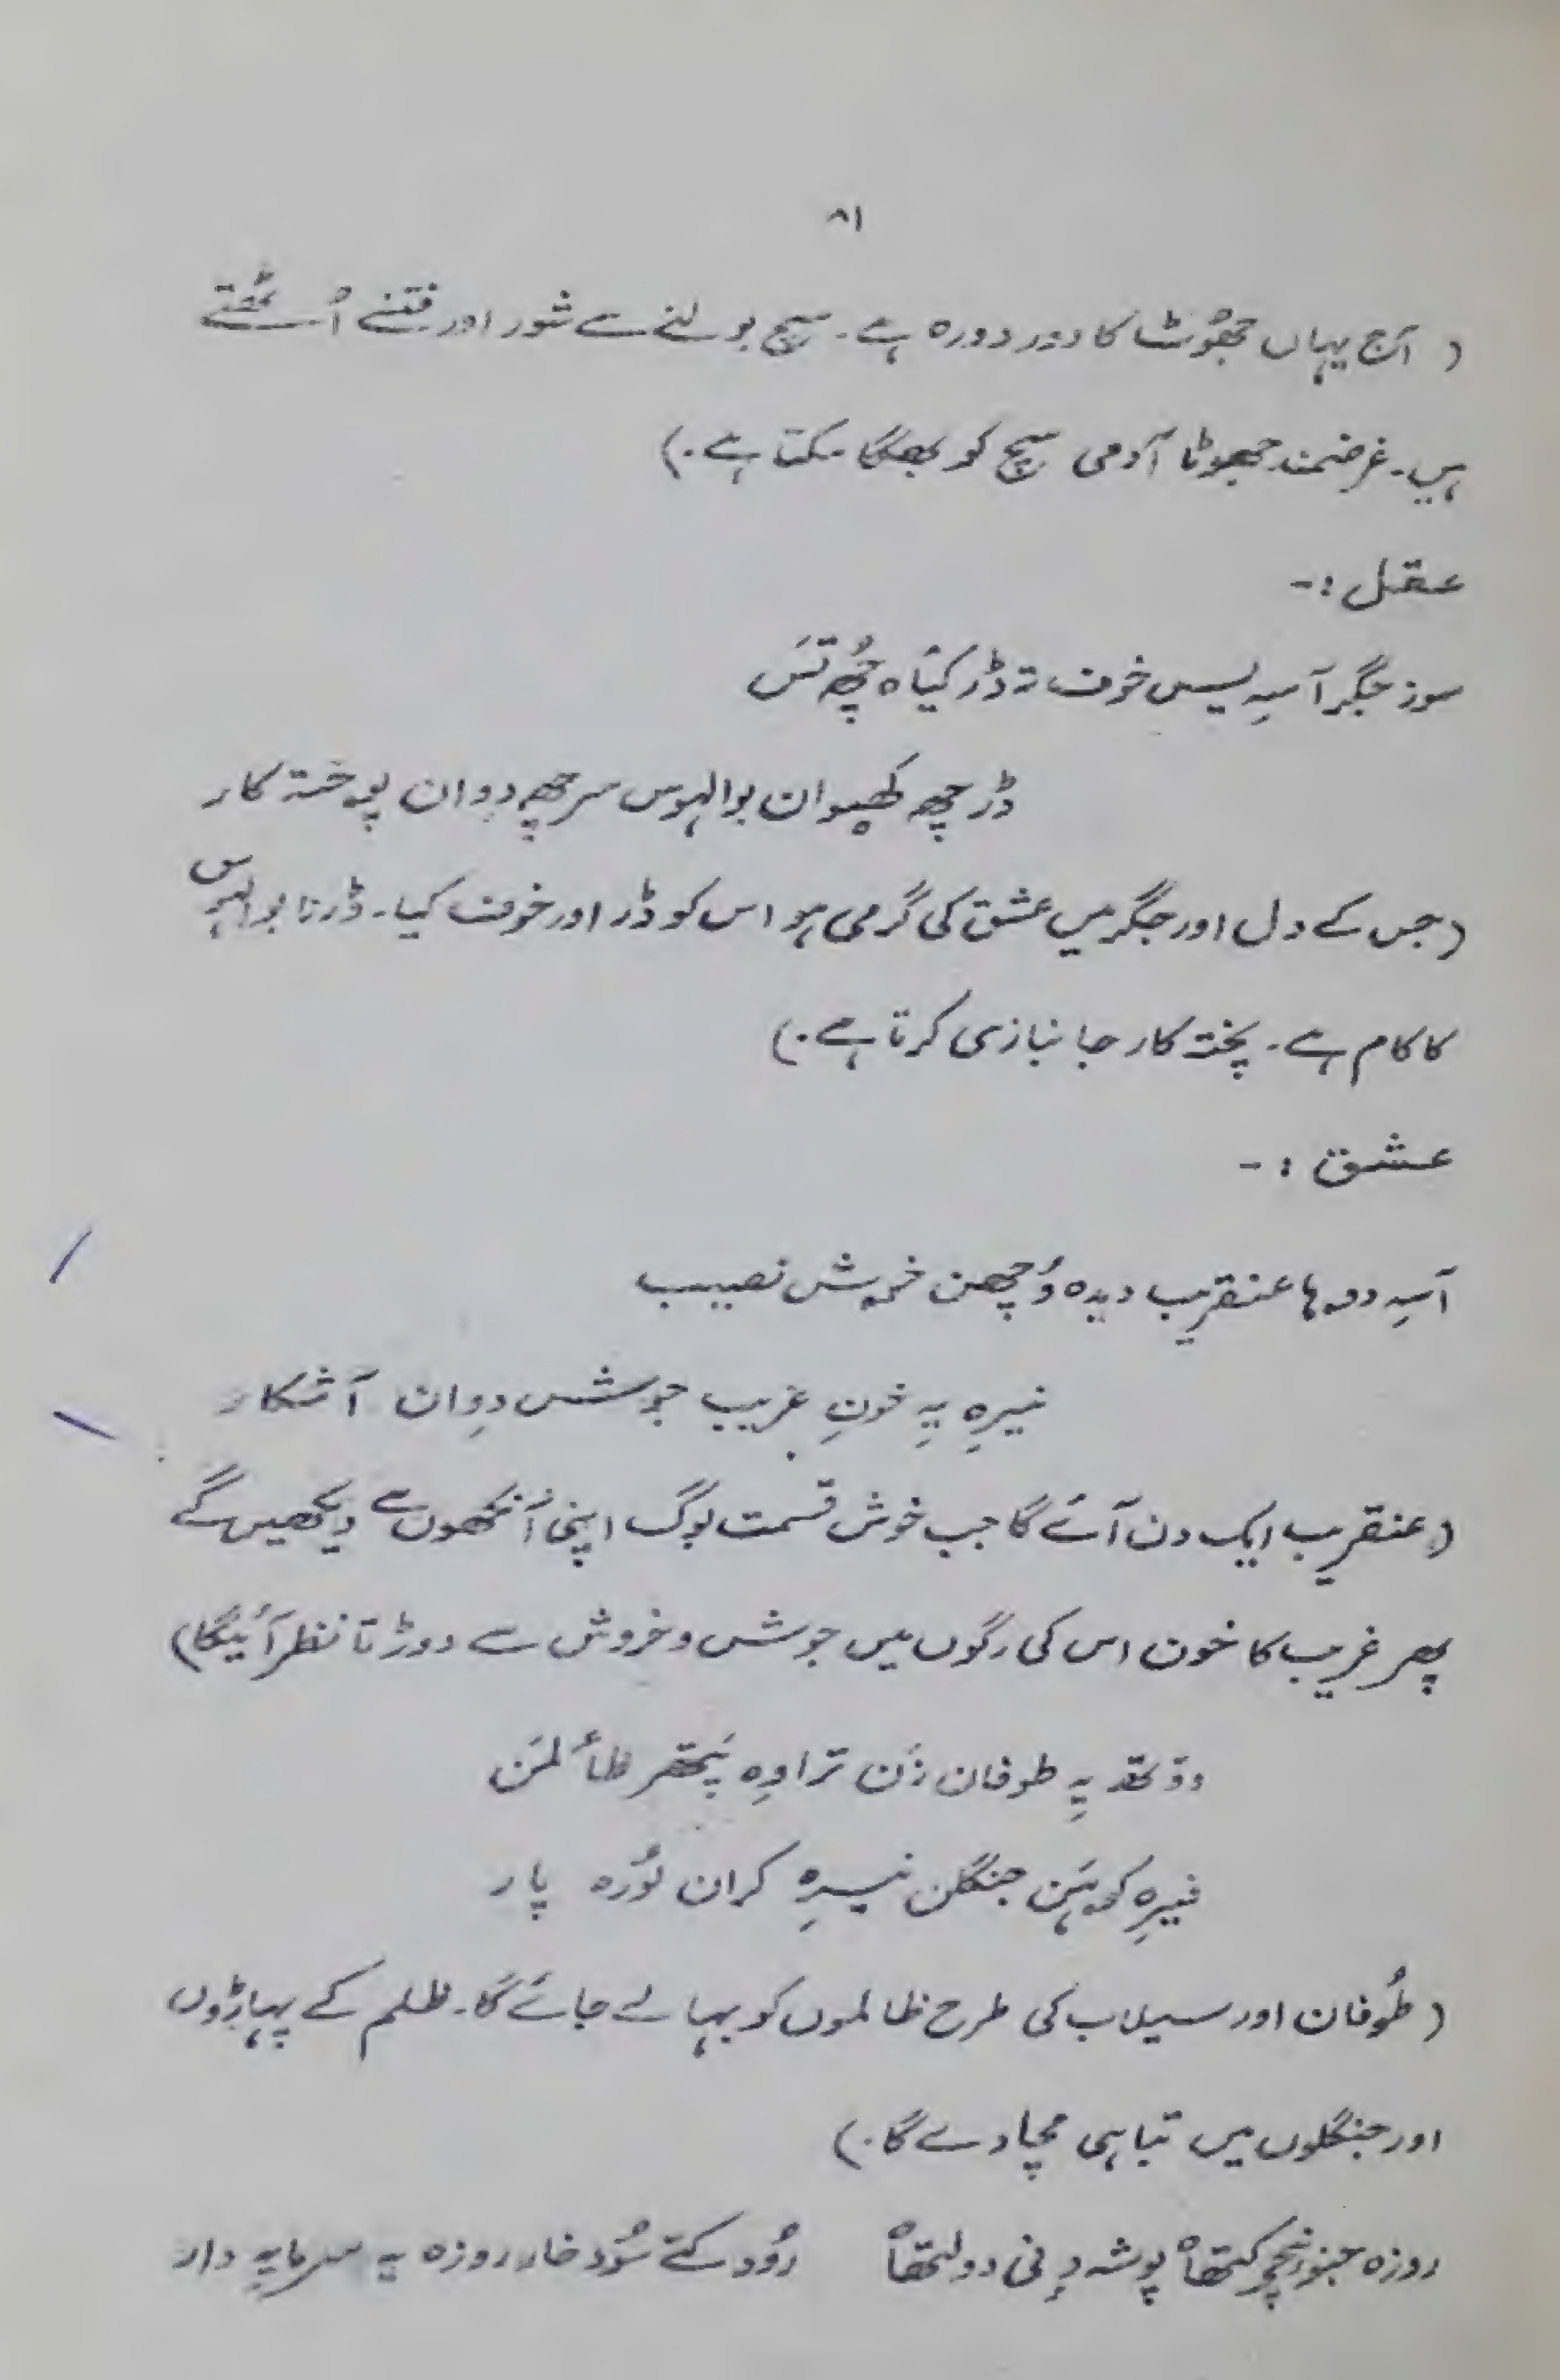 ۸۱
( آج یہاں جھُوٹ کا دور دورہ ہے۔ سچ بولنے سے شور اور فتنے اُٹھتے
ہیں۔ غرضمند جھوٹا آدمی سچ کو بھگا سکتا ہے۔)
عقل :-
سوز جگر آسہِ یس خوف تہ ڈر کیٛاہ چُھ تَس
ڈر چھ کھیوان بوالہوس سر چھ دِوان پوختہ کار
(جس کے دل اور جگر میں عشق کی گرمی ہو اس کو ڈر اور خوف کیا۔ ڈرنا بوالہوس
کا کام ہے۔ پختہ کار جانبازی کرتا ہے۔)
عشق :-
آسہِ دوہا عنقریب دیدہ وُچھن خوش نصیب
نیرِہ یہِ خونِ غریب جوش دِوان آشکار
(عنقریب ایک دن آئے گا جب خوش قسمت لوگ اپنی آنکھوں سے دیکھیں گے
پھر غریب کا خون اس کی رگوں میں جوش و خروش سے دوڑتا نظر آئیگا)
ووتھ یہِ طوفان زَن تراوِہ پَتھر ظاٹلمَن
فیرِہ کوہَن جنگلن نیرِہ کران لوُرہ پار
( طُوفان اور سیلاب کی طرح ظالموں کو بہا لے جائے گا۔ ظلم کے پہاڑوں
اور جنگلوں میں تباہی مچا دے گا۔)
روزہ پوشہ دولتھاہ رُود کتے سُود خار روزہ یہ سرمایہِ دار